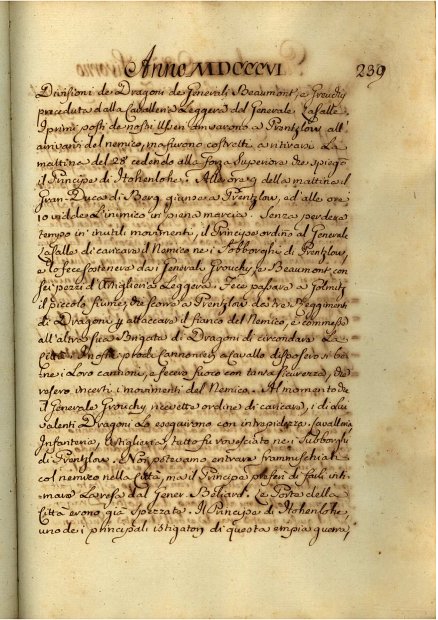 Anno MDCCCVI 239
Divisioni de Dragoni de Generali Beaumont, e Grouchy
preceduta dalla Cavalleria Leggera del Generale LaSalle.
I primi posti de nostri si avanzarono a Prentzlow all'
arrivarvi del nemico, ma furono costretti a ritirarsi La
mattina del 28 cedendo alla Forza Superiore che spiegò
il Principe di Hohenlohe. Alle ore 9 della mattina il
Gran-Duca di Berg giunse a Prentzlow, ed alle ore
10 vidde L'inimico in piena marcia. Senza perdere
tempo in inutili movimenti, il Principe ordinò al Generale
LaSalle di caricare il Nemico ne i Sobborghi di Prentzlow,
e lo fece sostenere da i Generali Grouchy, e Beaumont con
sei pezzi d'Artiglieria Leggera. Fece passare a Golmitz
il piccolo fiume, che scorre a Prentzlow da tre Reggimenti
di Dragoni, attaccare il fianco del Nemico, e commesse
all'altra sua Brigata di Dragoni di circondare La
Città. I nostri prodi Cannonieri a Cavallo disposero si be-
ne i Loro cannoni, e fecero fuoco con tanta sicurezza, che
resero incerti i movimenti del Nemico. Al momento che
il Generale Grouchy ricevette ordine di caricare, i di lui
valenti Dragoni La eseguirono con intrepidezza. Cavalleria
Infanteria, Artiglieria, tutto fu rovesciato ne i Subborghi
di Prentzlow. Non potevamo entrare frammischiati
col nemico nella Città, ma il Principe preferì di farli inti-
mare La resa dal Gener. Beliard. Le Porte della
Città erono già Spezzate. Il Principe di Hohenlohe,
uno dei principali istigatori di questa empia guerra,